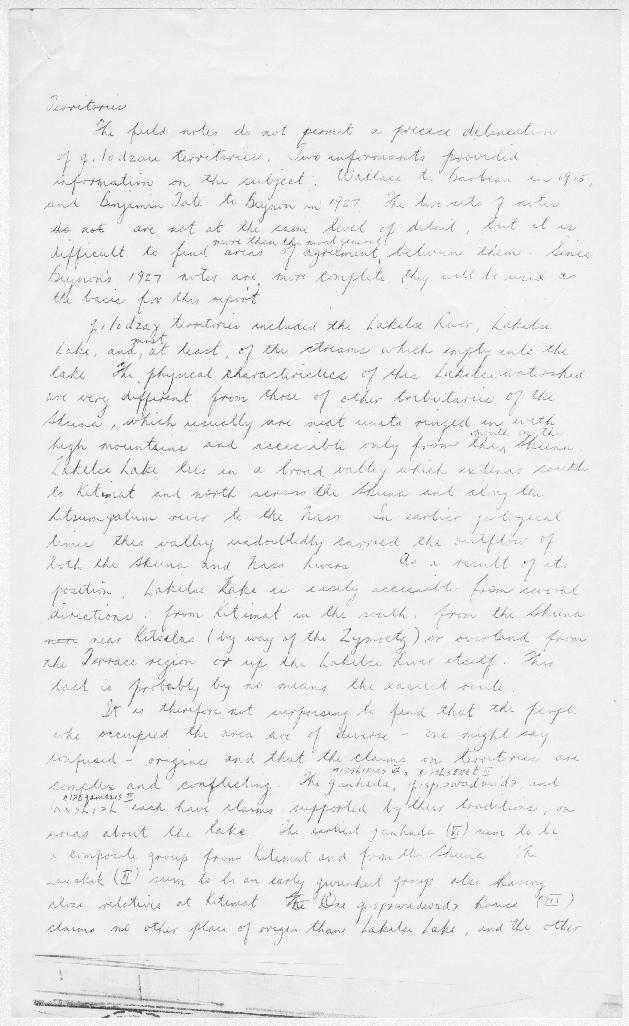 Territories
The field notes do not permit a precise delineation
of g.ilodzau territories. Two informants provided
information on the subject: Wallace to Barbeau in 1915,
and Benjamin Tate to Beynon in 1927. The two sets of notes
do not are not at the same level of detail, but it is
more than the most general
difficult to find areas of agreement between them. Since
Beynon's 1927 notes are more complete they will be used as
the basis for this report
g.ilodzaχ territories included the Lakelse River, Lakelse
most
Lake, and, at least, of the streams which empty into the
lake. The physical characteristics of this Lakelse watershed
are very different from those of other tributaries of the
Skeena, which usually are neat units ringed in with
mouth on the
high mountains and accessible only from their Skeena.
Lakelse Lake lies in a broad valley which extends south
to Kitimat and north across the Skeena and along the
Kitsumgalum river to the Nass. In earlier geological
times this valley undoubtedly carried the outflow of
both the Skeena and Nass rivers. As a result of its
position, Lakelse Lake is easily accessible from several
directions: from Kitimat in the south, from the Skeena
near Kitselas (by way of the Zymoetz) or overland from
the Terrace region or up the Lakelse River itself. This
last is probably by no means the easiest route.
It is therefore not surprising to find that the people
who occupied the area are of diverse - one might say
confused - origins and that the claims on territories are
complex and conflicting. The ganhada, and
each have claims, supported by their traditions, on
areas about the lake. The earliest ganhada (VI) seem to be
a composite group from Kitimat and from the Skeena. The
(II) seem to be an early group also having
close relatives at Kitimat. The One house (III)
claims no other place of origin than Lakelse Lake, and the other